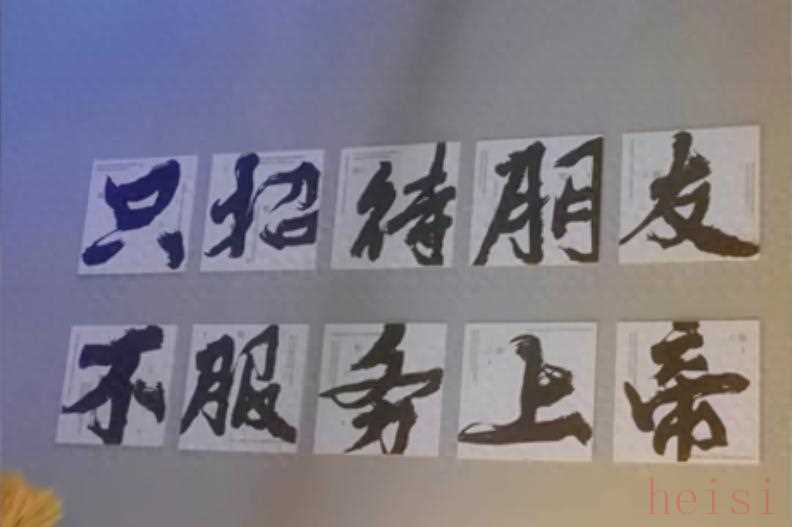 只招待朋友
不服务上帝
heisi